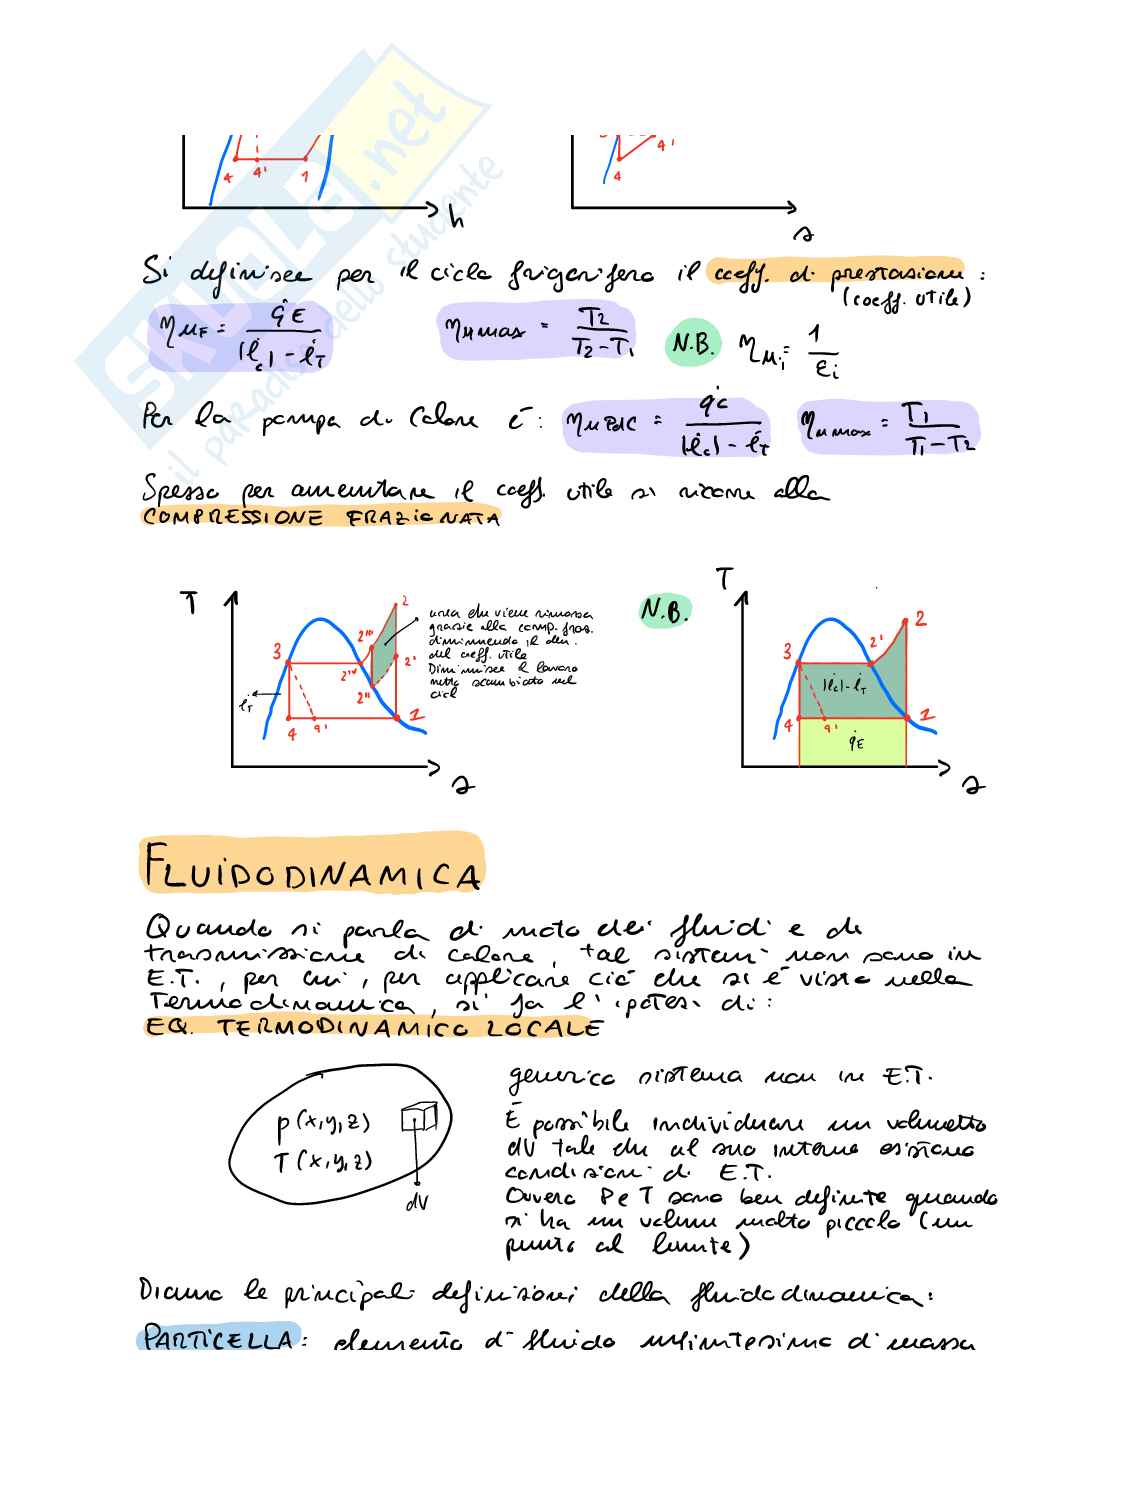 SKUOLA.net
il paradiso dello studente
4 4' 1 h
4' 4 s
Si definisce per il ciclo frigorifero il coeff. di prestazione :
(coeff. utile)
ημF = q̇E / |l̇c| - l̇T
ημmax = T2 / T2-T1
N.B.
ημi = 1 / εi
Per la pompa di calore è : ημPdC = q̇c / |l̇c| - l̇T
ημmax = T1 / T1-T2
Spesso per aumentare il coeff. utile si ricorre alla
COMPRESSIONE FRAZIONATA
T 2 3 2''' 2'''' 2' 2'' l̇T 4 4' 1 s
area che viene rimossa
grazie alla comp. fraz.
diminuendo il den.
del coeff. utile
Diminuisce il lavoro
netto scambiato nel
cicl
N.B.
T 2 3 2' |l̇c|-l̇T 4 4' 1 q̇E s
FLUIDODINAMICA
Quando si parla di moto dei fluidi e di
trasmissione di calore, tal sistemi non sono in
E.T., per cui, per applicare ciò che si è visto nella
Termodinamica, si fa l'ipotesi di :
EQ. TERMODINAMICO LOCALE
p(x,y,z)
T(x,y,z)
dV
generico sistema non in E.T.
È possibile individuare un volumetto
dV tale che al suo interno esistano
condizioni di E.T.
Ovvero P e T sono ben definite quando
si ha un volume molto piccolo (un
punto al limite)
Diamo le principali definizioni della fluidodinamica:
PARTICELLA : elemento di fluido infinitesimo di massa